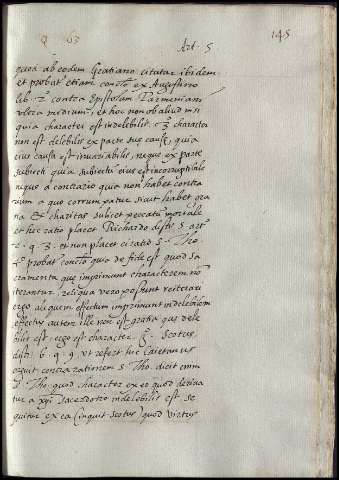 Q 63 Art. 5 145
quod ab eodem Gratiano citatur ibidem
et probat etiam concl. ex Augustino
lib. 2 contra Epistolam Parmeniani
ultra medium, et hoc non ob aliud nisi
quia character est indelebilis. character
non est delebilis ex parte suę causę, quia
eius causa est invariabilis, neque ex parte
subiecti quia subiectum eius est incorruptibile
neque a contrario quia non habet contra
rium a quo corrumpatur sicut habet gra
tia et charitas scilicet peccatum mortale
et hęc ratio placet Richardo dist. 5 art.
2 q 3. et non placet citatio S. Tho.
probat concl. quia de fide est quod sa
cramenta quę imprimunt characterem non
iterantur, reliqua vero possunt reiterari
ergo aliquem effectum imprimunt indelebilem
effectus autem ille non est gratia quę dele
bilis est, ergo est character. Scotus
dist. 6 q 9 ut refert hic Caietanus
arguit contra rationem S. Tho. dicit enim
S. Tho. quod character ex eo quod deriva
tur a Xpi sacerdotio indelebilis est se
quitur ex ea (inquit Scotus) quod virtus